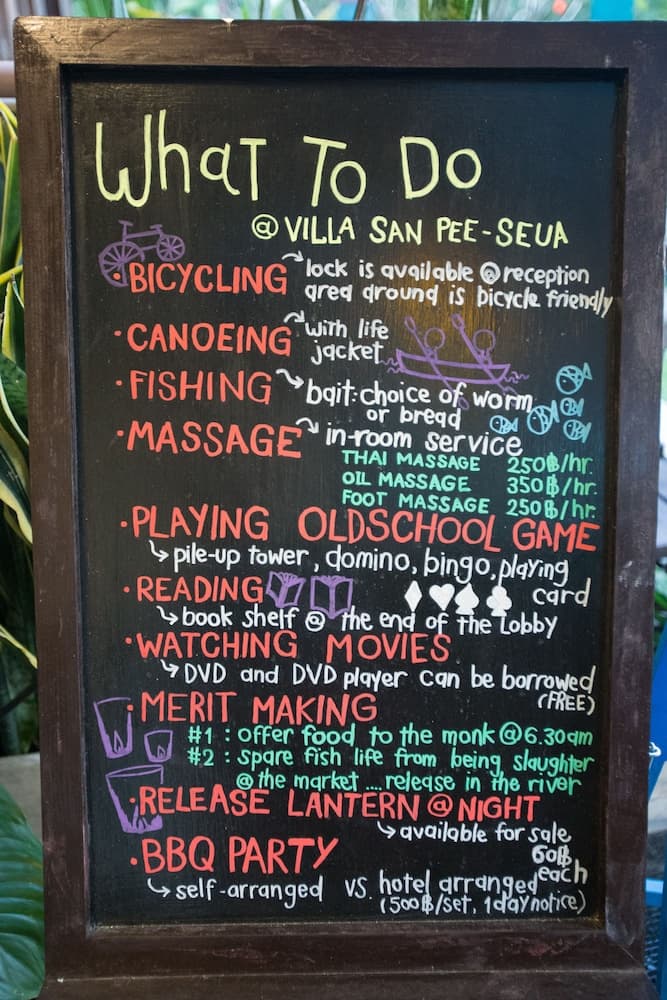 WhaT To Do
@ VILLA SAN PEE-SEUA
· BICYCLING lock is available @ reception
area around is bicycle friendly
· CANOEING with life
jacket
· FISHING bait: choice of worm
or bread
· MASSAGE in-room service
THAI MASSAGE 250฿/hr.
OIL MASSAGE 350฿/hr.
FOOT MASSAGE 250฿/hr.
· PLAYING OLDSCHOOL GAME
pile-up tower, domino, bingo, playing
card
· READING
book shelf @ the end of the Lobby
· WATCHING MOVIES
DVD and DVD player can be borrowed
(FREE)
· MERIT MAKING
#1 : offer food to the monk @ 6.30am
#2 : spare fish life from being slaughter
@ the market ....release in the river
· RELEASE LANTERN @ NIGHT
available for sale
60฿
each
· BBQ PARTY
self-arranged vs. hotel arranged
(500฿/set, 1 day notice)